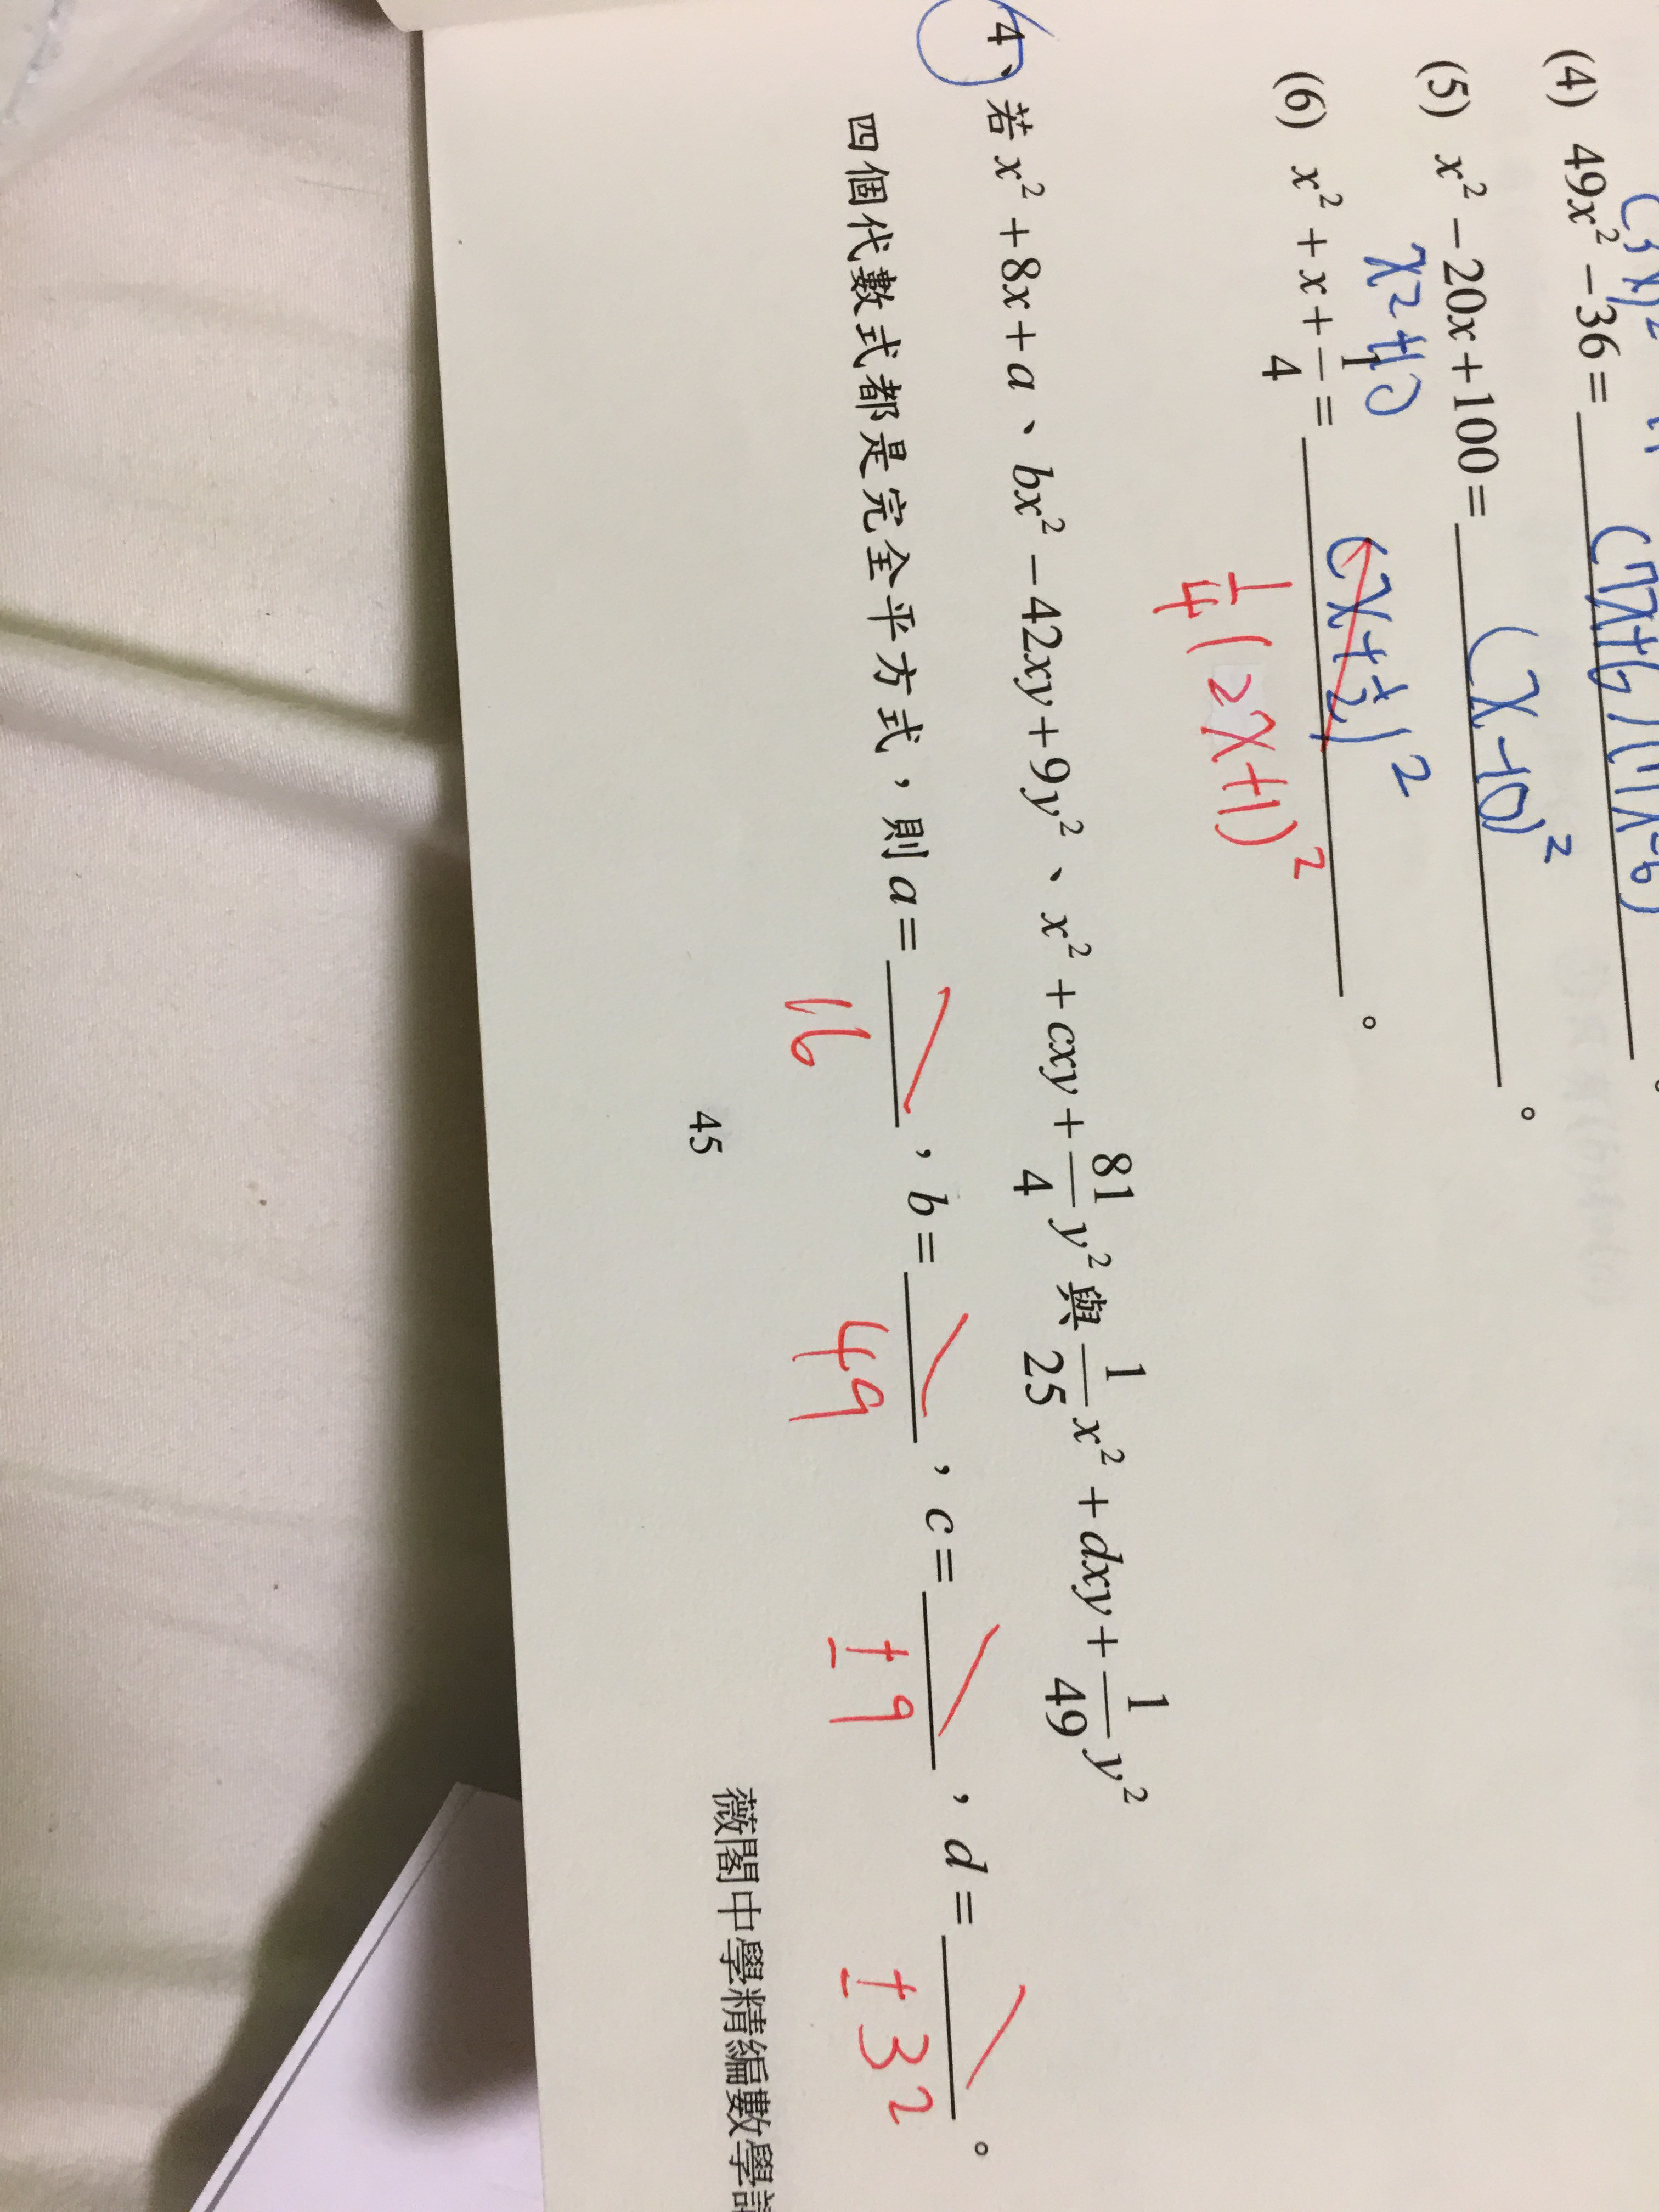 (4) 49x² − 36 = (7x+6)(7x-6)
(5) x² − 20x + 100 = (x-10)² 。
x²+10
(6) x² + x + 1/4 = (x+1/2)² 。
1/4(2x+1)²
4、若 x² + 8x + a、bx² − 42xy + 9y²、x² + cxy + 81/4 y² 與 1/25 x² + dxy + 1/49 y²
四個代數式都是完全平方式，則 a = ，b = ，c = ，d = 。
16 49 ±9 ±32
45
薇閣中學精編數學